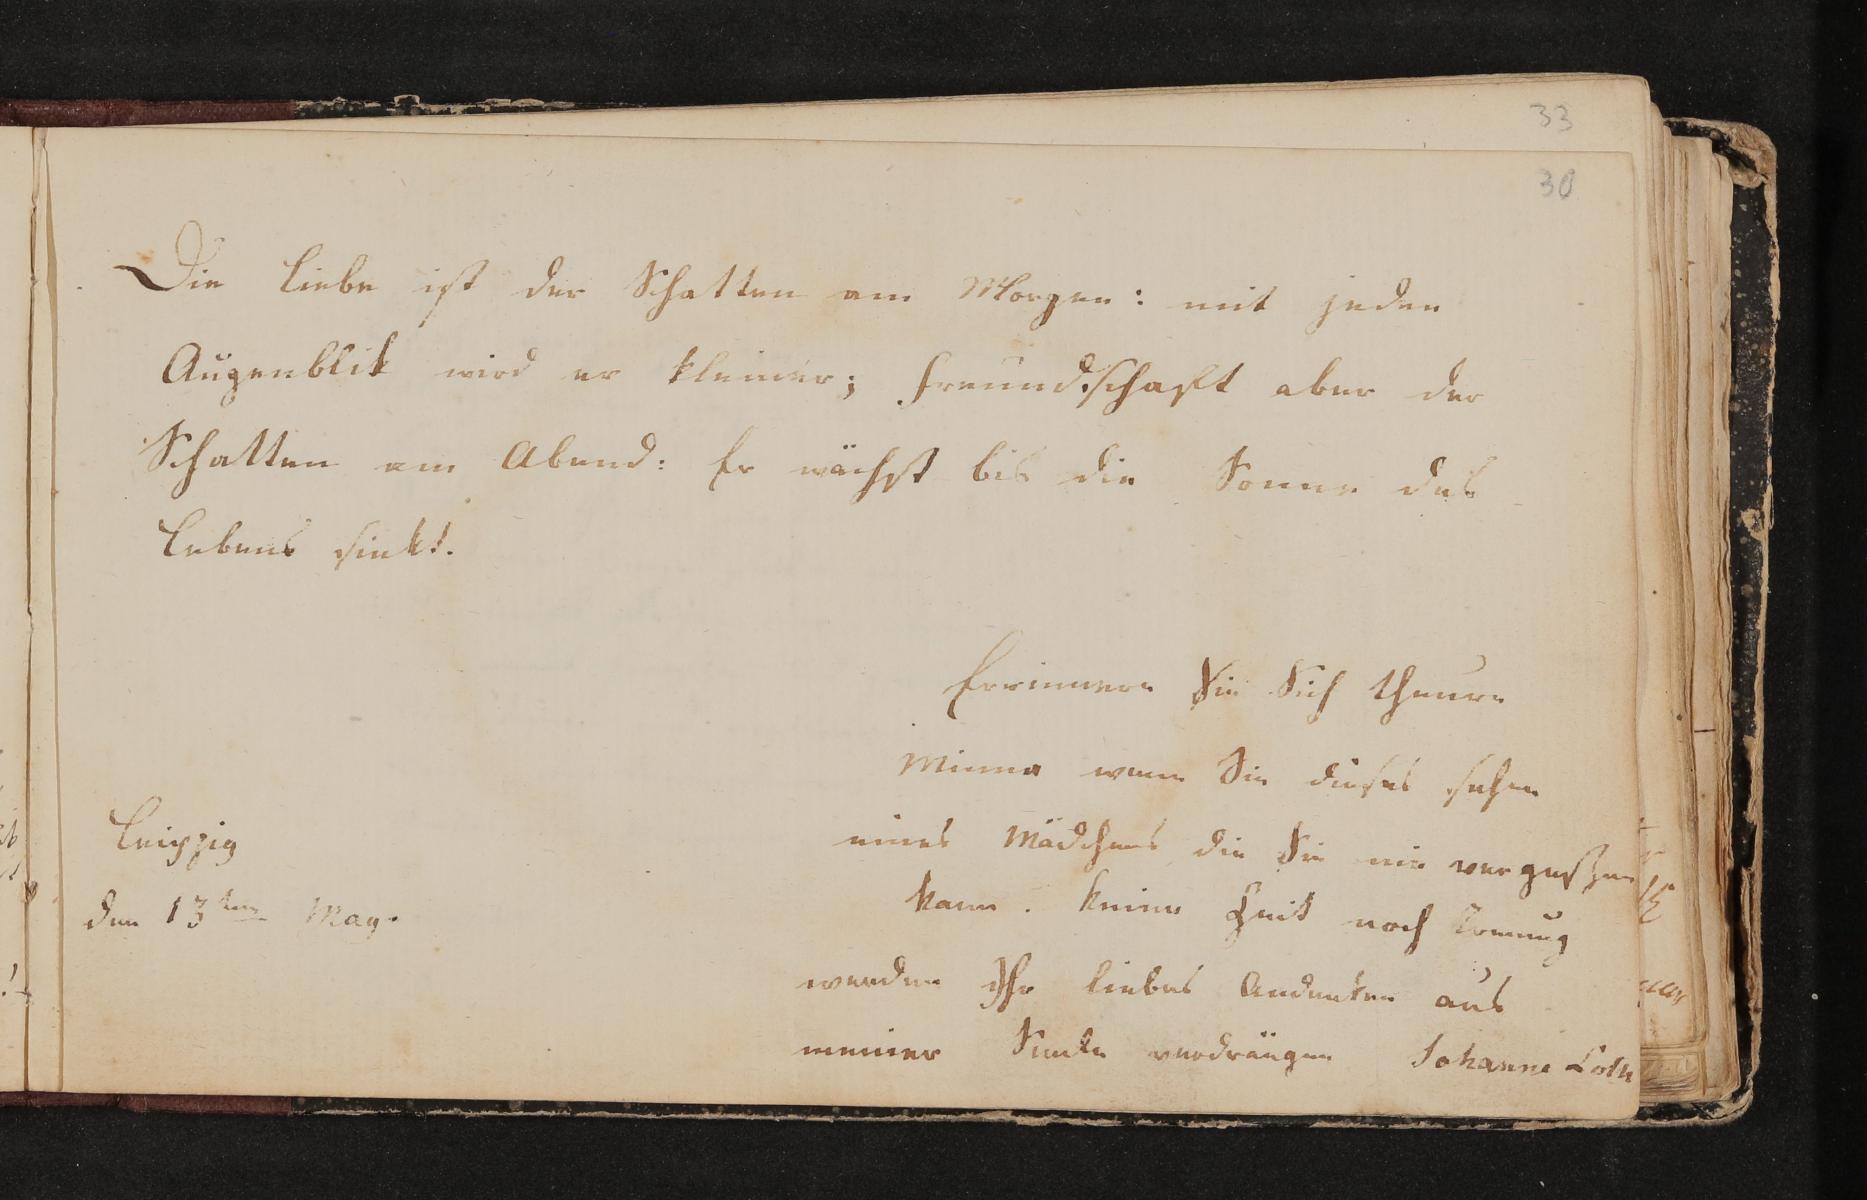 33
30
Die Liebe ist der Schatten am Morgen: mit jeden
Augenblik wird er kleiner; Freundschaft aber der
Schatten am Abend: Er wächst bis die Sonne des
Lebens sinkt.
Errinnern Sie Sich theure
Minna wenn Sie dieses sehen
eines Mädchens die Sie nie vergeßen
kann. keine Zeit noch Trennug
werden Ihr liebes Andenken aus
meiner Seele verdrängen Johanne
Leipzig
den 13ten May.